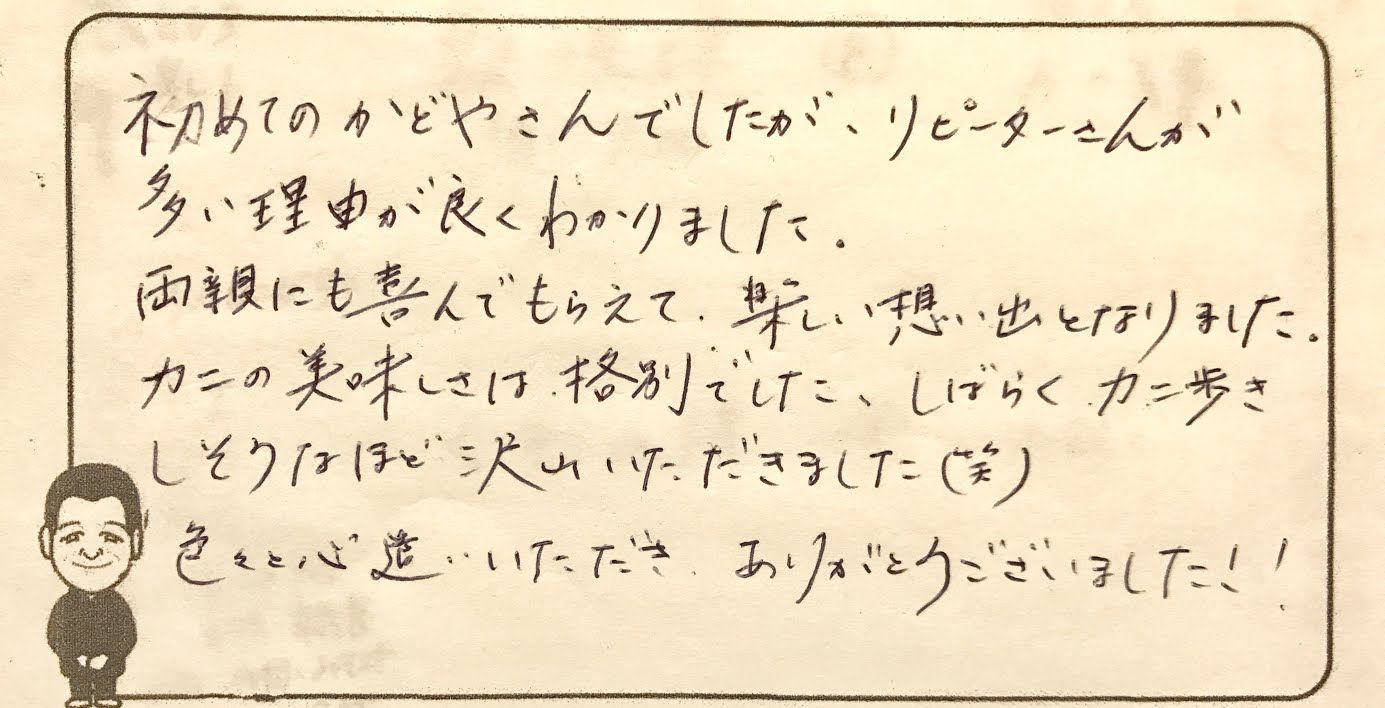 初めてのかどやさんでしたが、リピーターさんが
多い理由が良くわかりました。
両親にも喜んでもらえて、楽しい想い出となりました。
カニの美味しさは、格別でした、しばらくカニ歩き
しそうなほど沢山いただきました(笑)
色々と心遣いいただき、ありがとうございました!!